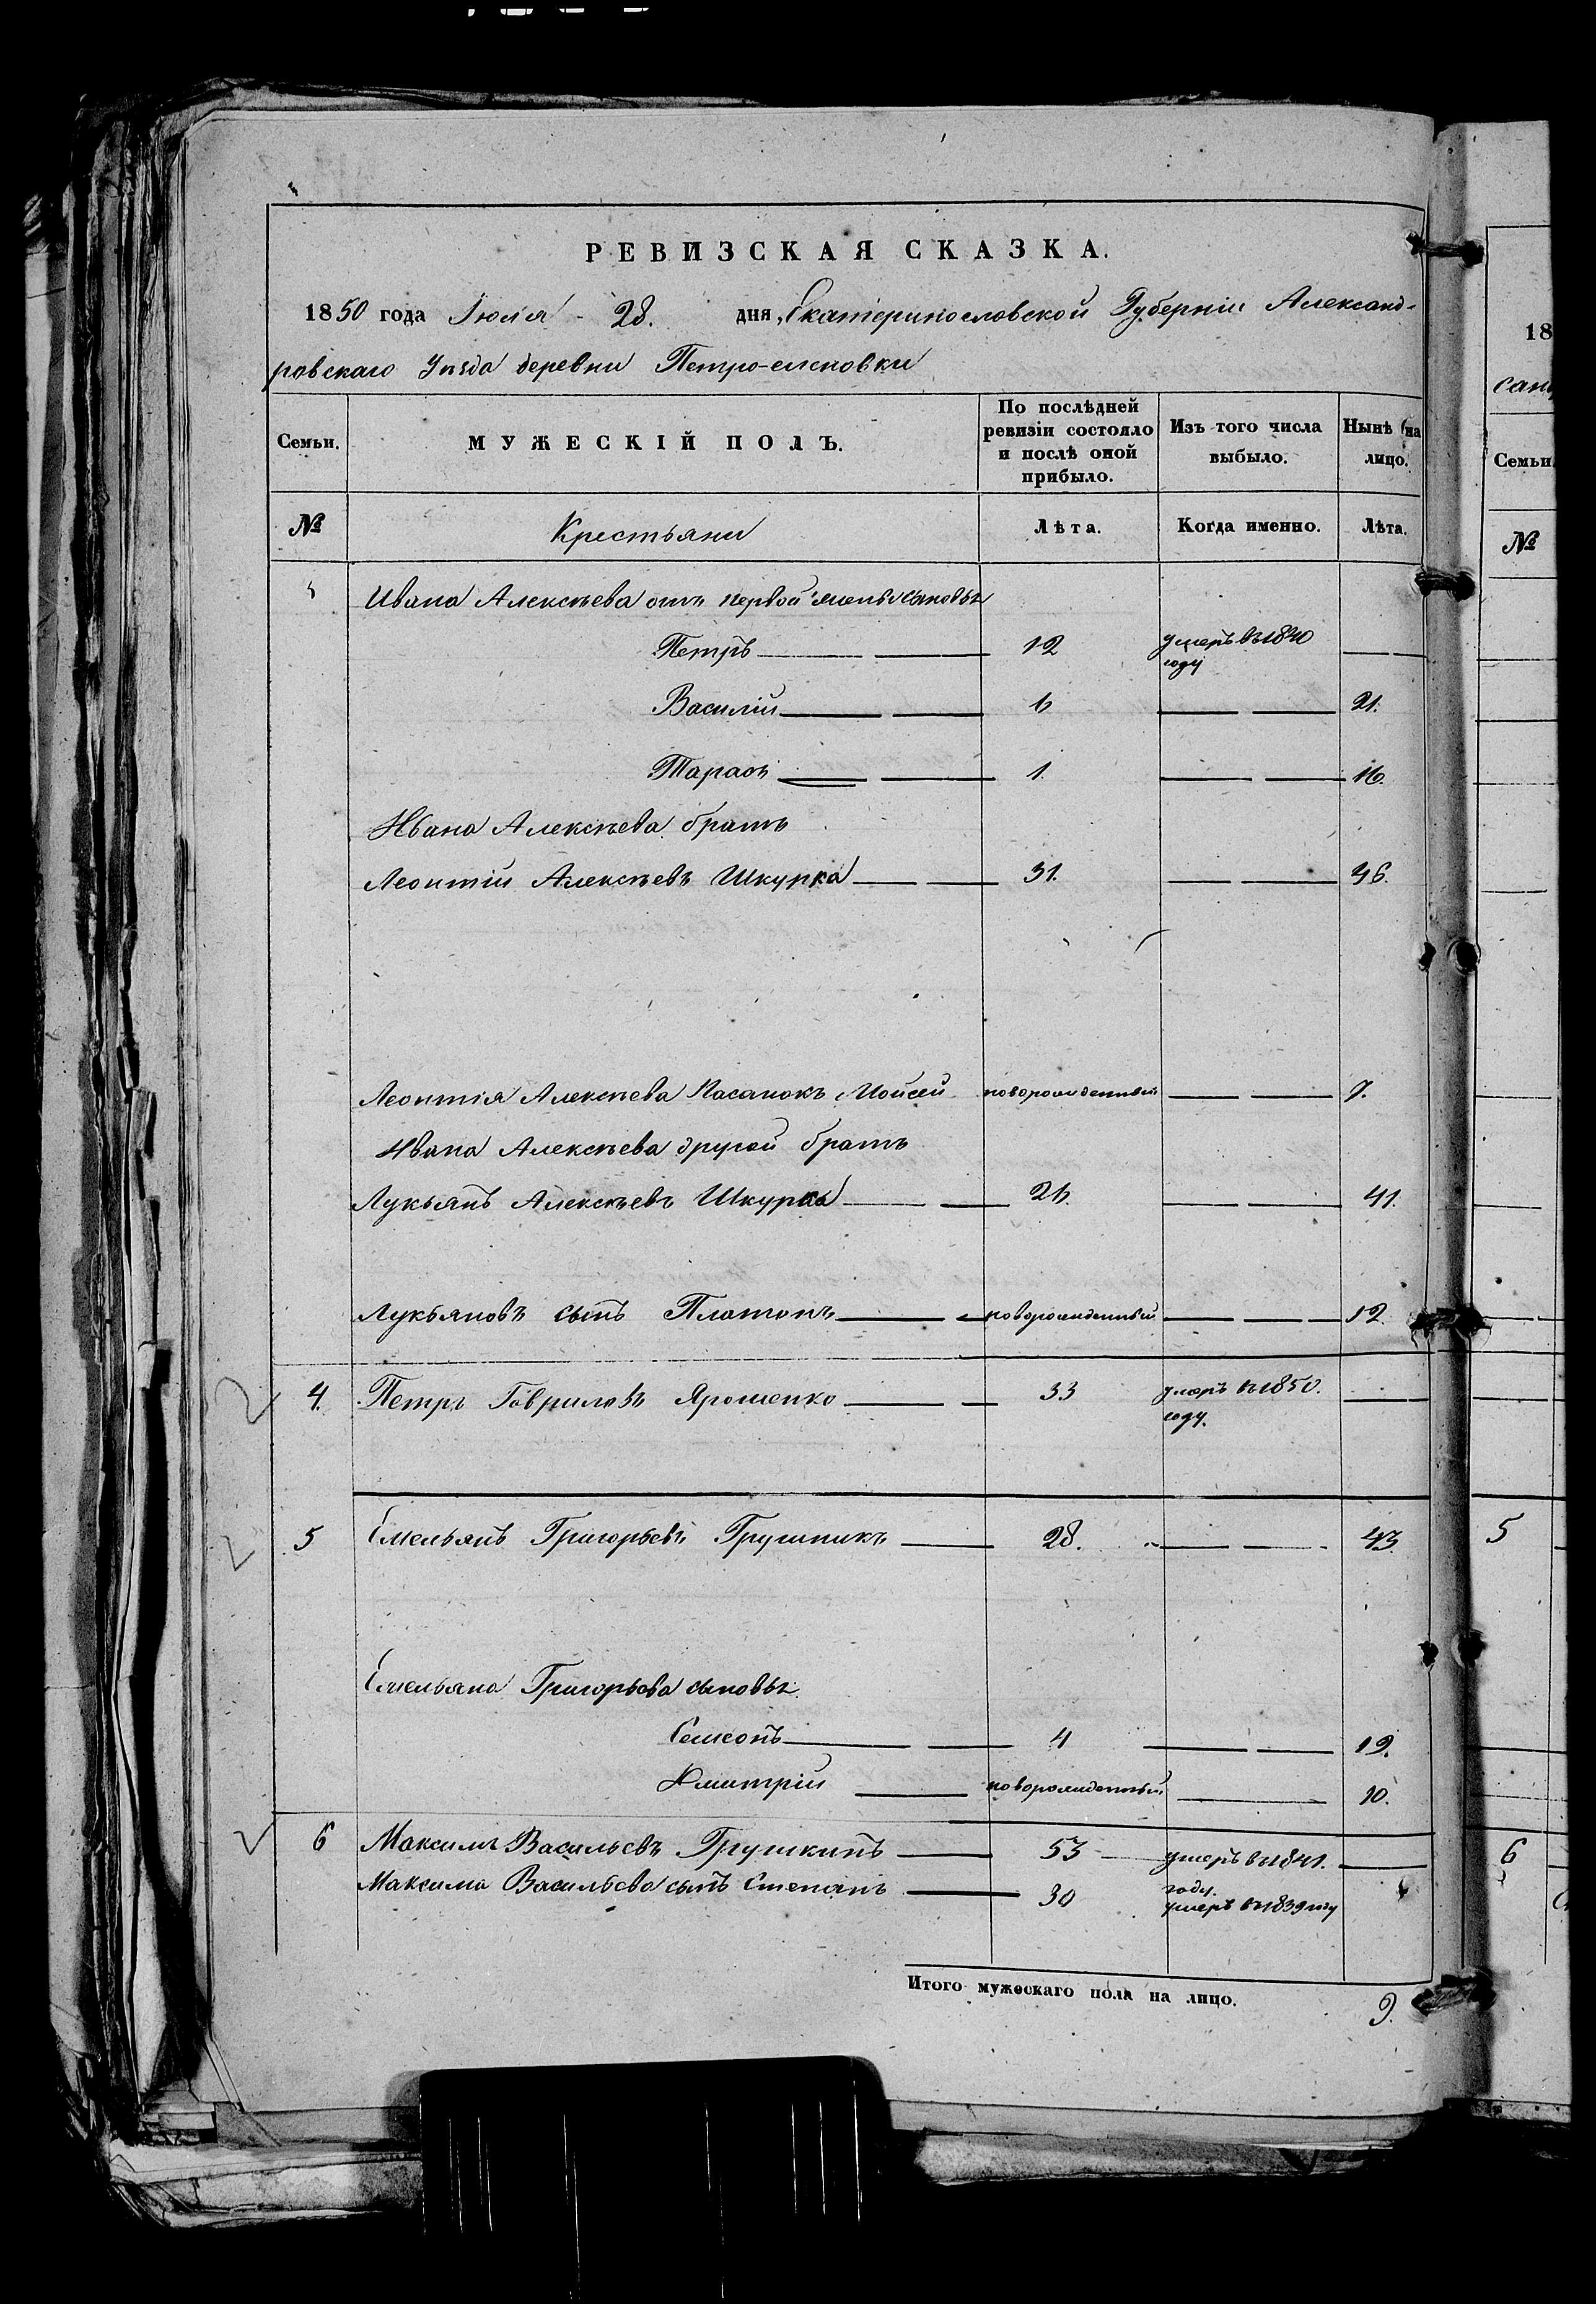 РЕВИЗСКАЯ СКАЗКА.
1850 года Іюля 28. дня, Екатеринославской Губерніи Александ-
ровскаго Уѣзда деревни Петро-еленовки
Семьи. МУЖЕСКІЙ ПОЛЪ. По послѣдней ревизіи состояло и послѣ оной прибыло. Изъ того числа выбыло. Нынѣ на лицо.
№ Крестьяни Лѣта. Когда именно. Лѣта.
Ивана Алексѣева отъ первой жены сыновья
Петръ 12 умеръ въ 1840 году
Василій 6 21.
Тарасъ 1. 16.
Ивана Алексѣева братъ
Леонтій Алексѣевъ Шкурка 31. 46.
Леонтія Алексѣева Пасанокъ Мойсей новорожденный 7.
Ивана Алексѣева другой братъ
Лукьянъ Алексѣевъ Шкурка 26. 41.
Лукьяновъ сынъ Платонъ новорожденный 12.
4. Петръ Гавриловъ Ярошенко 33 умеръ въ 1850. году.
5 Емельянъ Григорьевъ Грушникъ 28. 43
Емельяна Григорьева сыновья
Семенъ 4 19.
Дмитрій новорожденный 10.
6 Максимъ Васильевъ Грушкинъ 53 умеръ въ 1841. году.
Максима Васильева сынъ Степанъ 30 умеръ въ 1839 году
Итого мужескаго пола на лицо. 9.
18
сан
Семьи
№
5
6